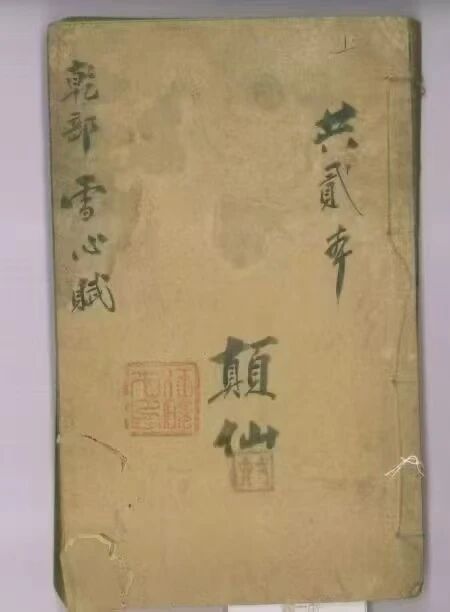 上
共貳本
顛仙
乾部 雪心賦